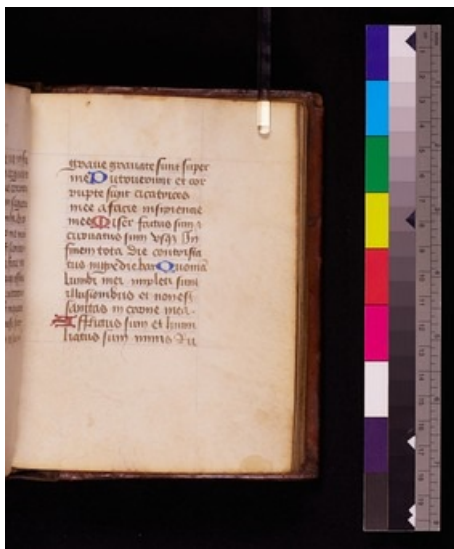 graue grauate sunt super
me Putruerunt et cor
rupte sunt cicatrices
mee a facie insipiencie
mee Miser factus sum
curuatus sum vsqz in
finem tota die contrista
tus ingrediebar Quoniam
lumbi mei impleti sunt
illusionibus et non est
sanitas in carne mea
Afflictus sum et humi
liatus sum nimis